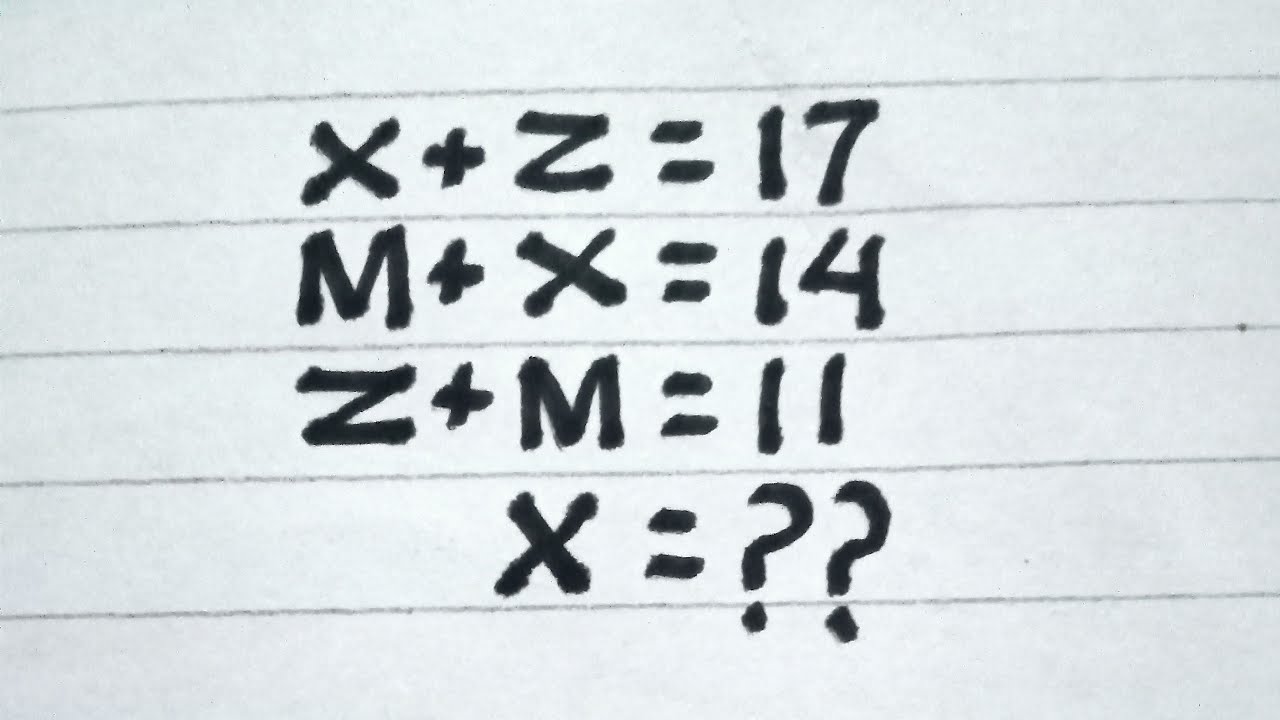 X + Z = 17
M + X = 14
Z + M = 11
X = ??